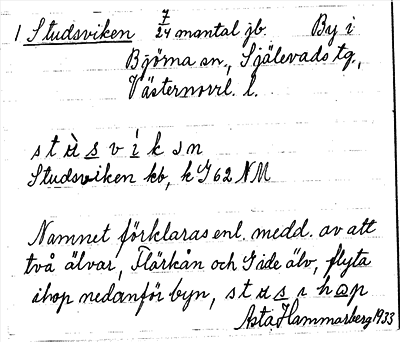 1 Studsviken 7/24 mantal jb. By i
Björna sn., Själevads tg.,
Västernorrl. l.
s t ʉ̀ s v í k ɔ n
Studsviken kb, k I 62 NM
Namnet förklaras enl. medd. av att
två älvar, Flärkån och Gide älv, flyta
ihop nedanför byn, s t ʉ s ı h o p
Asta Hammarberg 1933